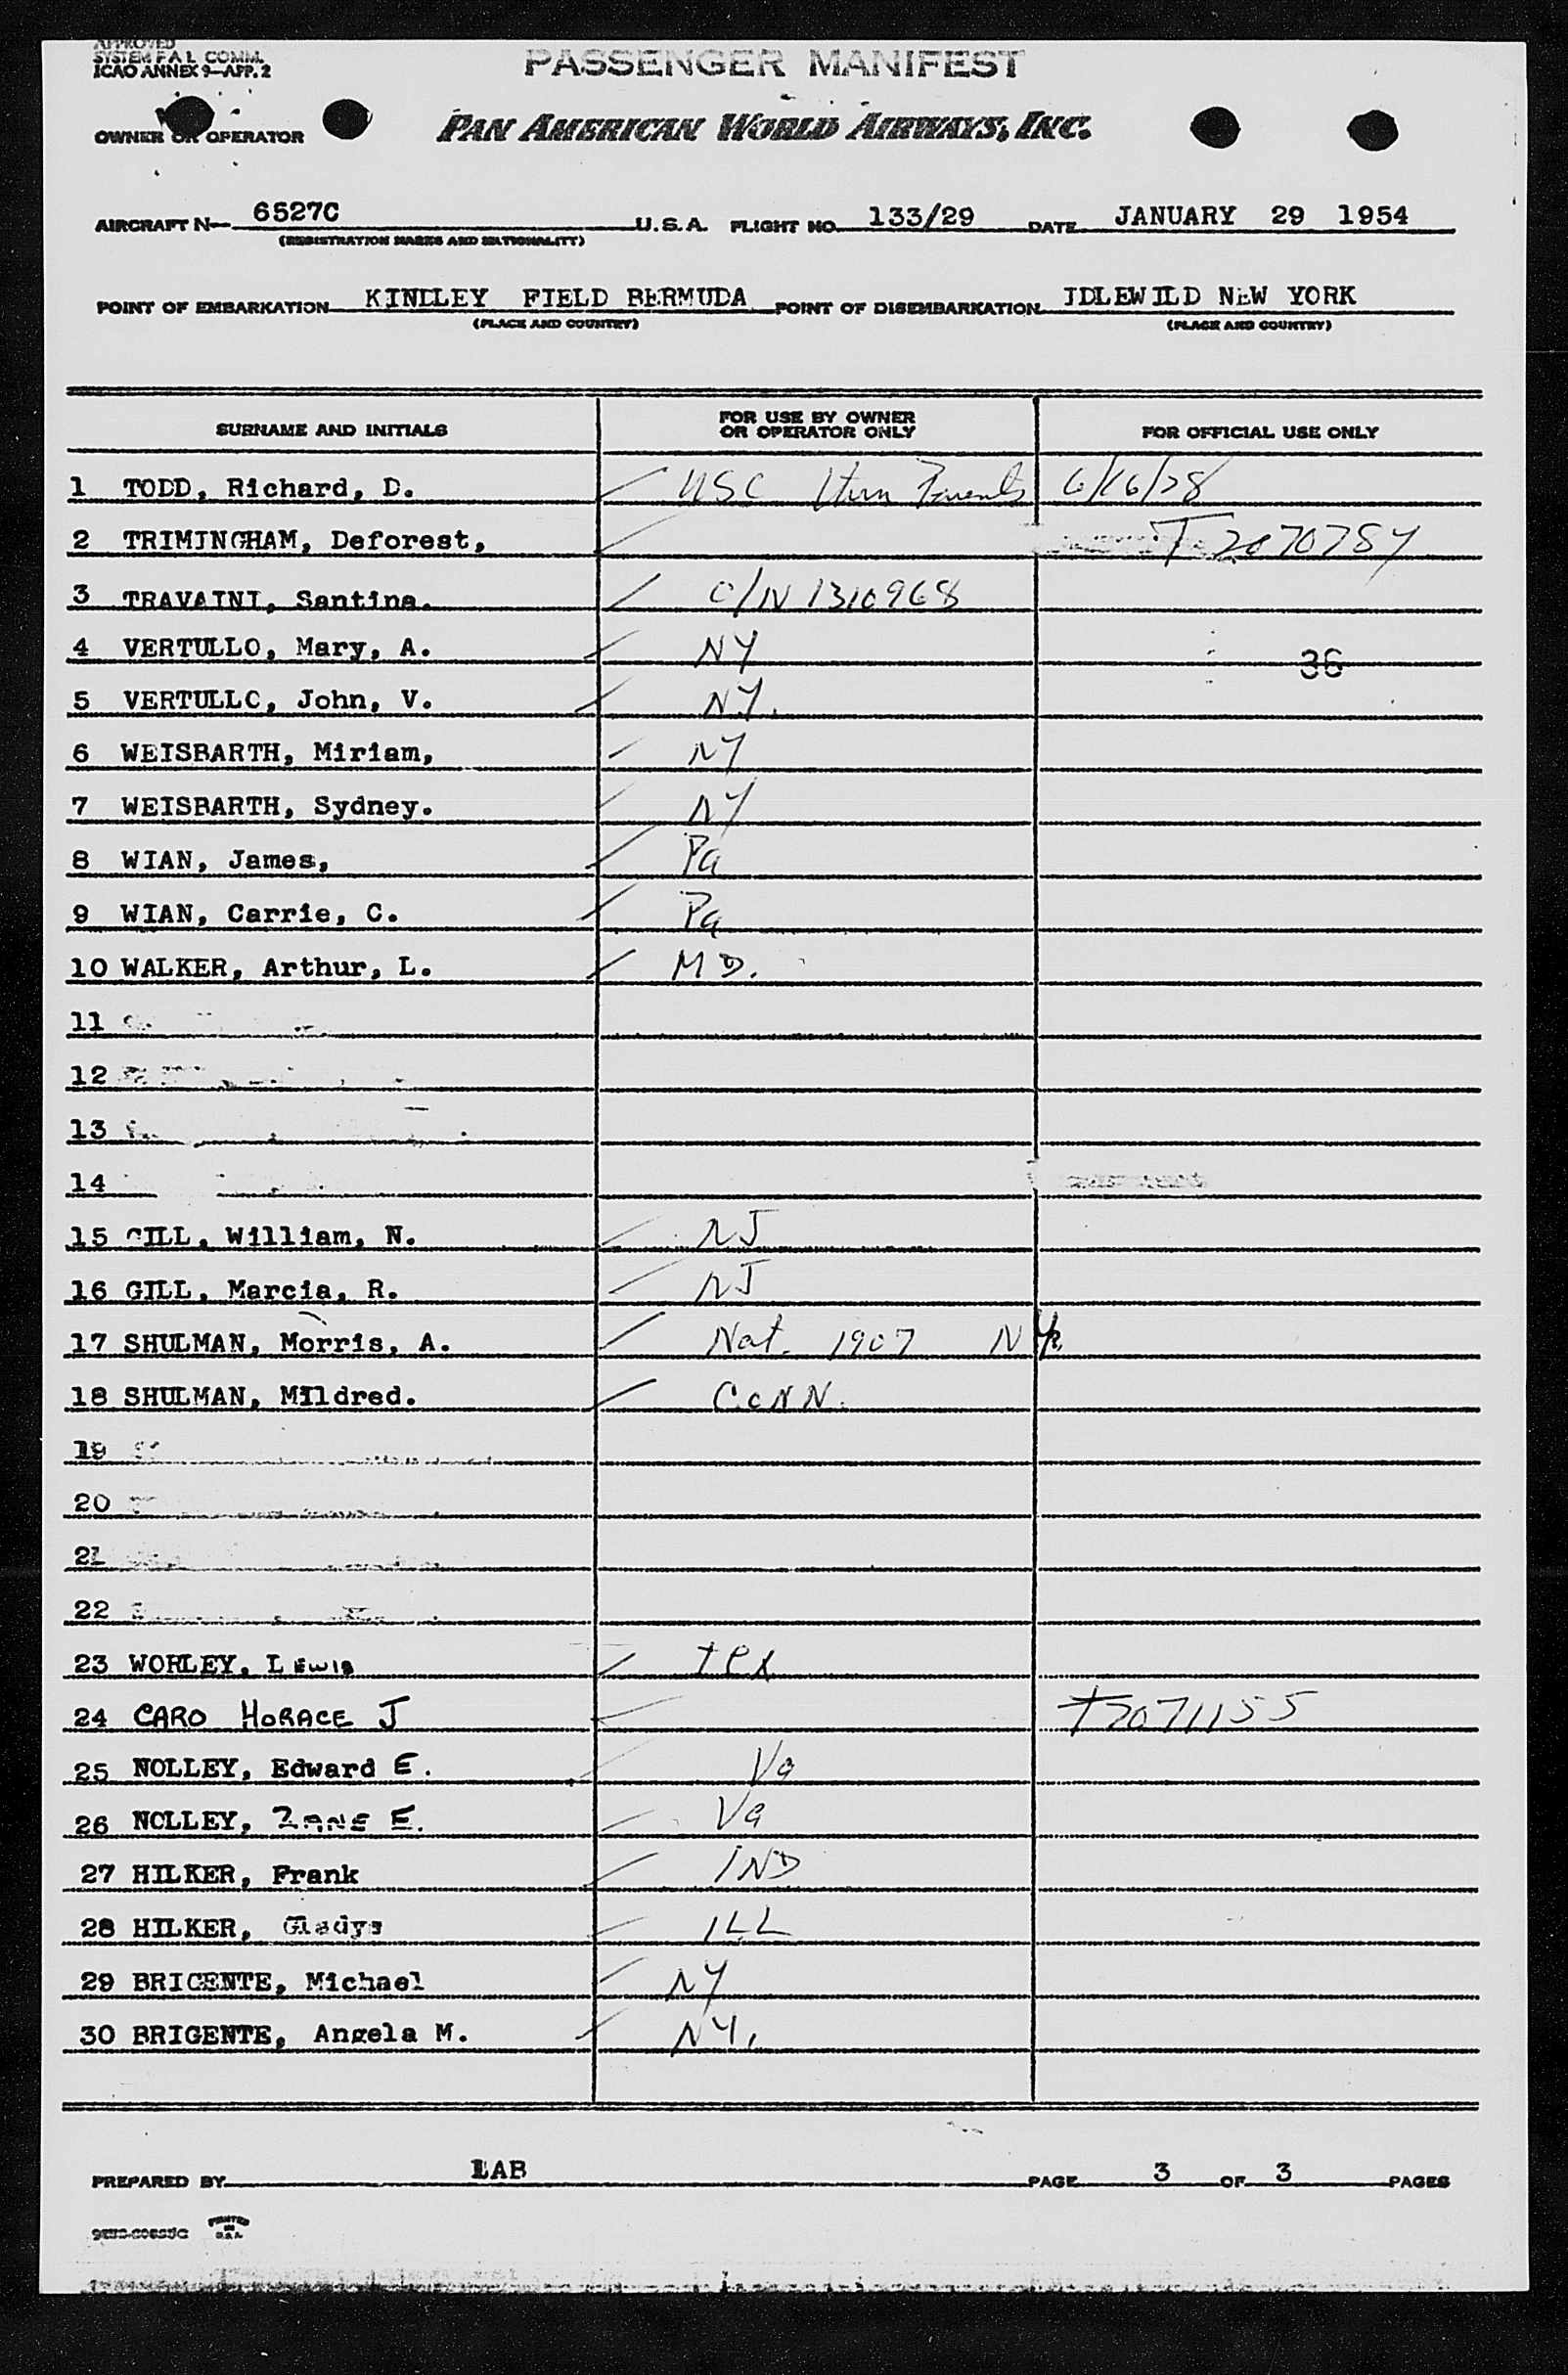 APPROVED
SYSTEM F A L COMM.
ICAO ANNEX 9—APP. 2
PASSENGER MANIFEST
OWNER OR OPERATOR
PAN AMERICAN WORLD AIRWAYS, INC.
AIRCRAFT N— 6527C U.S.A. FLIGHT NO. 133/29 DATE JANUARY 29 1954
(REGISTRATION MARKS AND NATIONALITY)
POINT OF EMBARKATION KINDLEY FIELD BERMUDA POINT OF DISEMBARKATION IDLEWILD NEW YORK
(PLACE AND COUNTRY) (PLACE AND COUNTRY)
SURNAME AND INITIALS FOR USE BY OWNER OR OPERATOR ONLY FOR OFFICIAL USE ONLY
1 TODD, Richard, D. USC 6/16/28
2 TRIMINGHAM, Deforest, T 2070784
3 TRAVAINI, Santina. C/N 1310968
4 VERTULLO, Mary, A. NY 36
5 VERTULLO, John, V. NY.
6 WEISBARTH, Miriam, NY
7 WEISBARTH, Sydney. NY
8 WIAN, James, Pa
9 WIAN, Carrie, C. Pa
10 WALKER, Arthur, L. MD.
11
12
13
14
15 GILL, William, N. NJ
16 GILL, Marcia, R. NJ
17 SHULMAN, Morris, A. Nat. 1907 NYk
18 SHULMAN, Mildred. CoNN.
19
20
21
22
23 WORLEY, Lewis tex
24 CARO HORACE J T2071155
25 NOLLEY, Edward E. Va
26 NOLLEY, ZANE E. Va
27 HILKER, Frank IND
28 HILKER, Gladys ILL
29 BRIGENTE, Michael NY
30 BRIGENTE, Angela M. NY.
PREPARED BY LAB PAGE 3 OF 3 PAGES
PRINTED IN U.S.A.